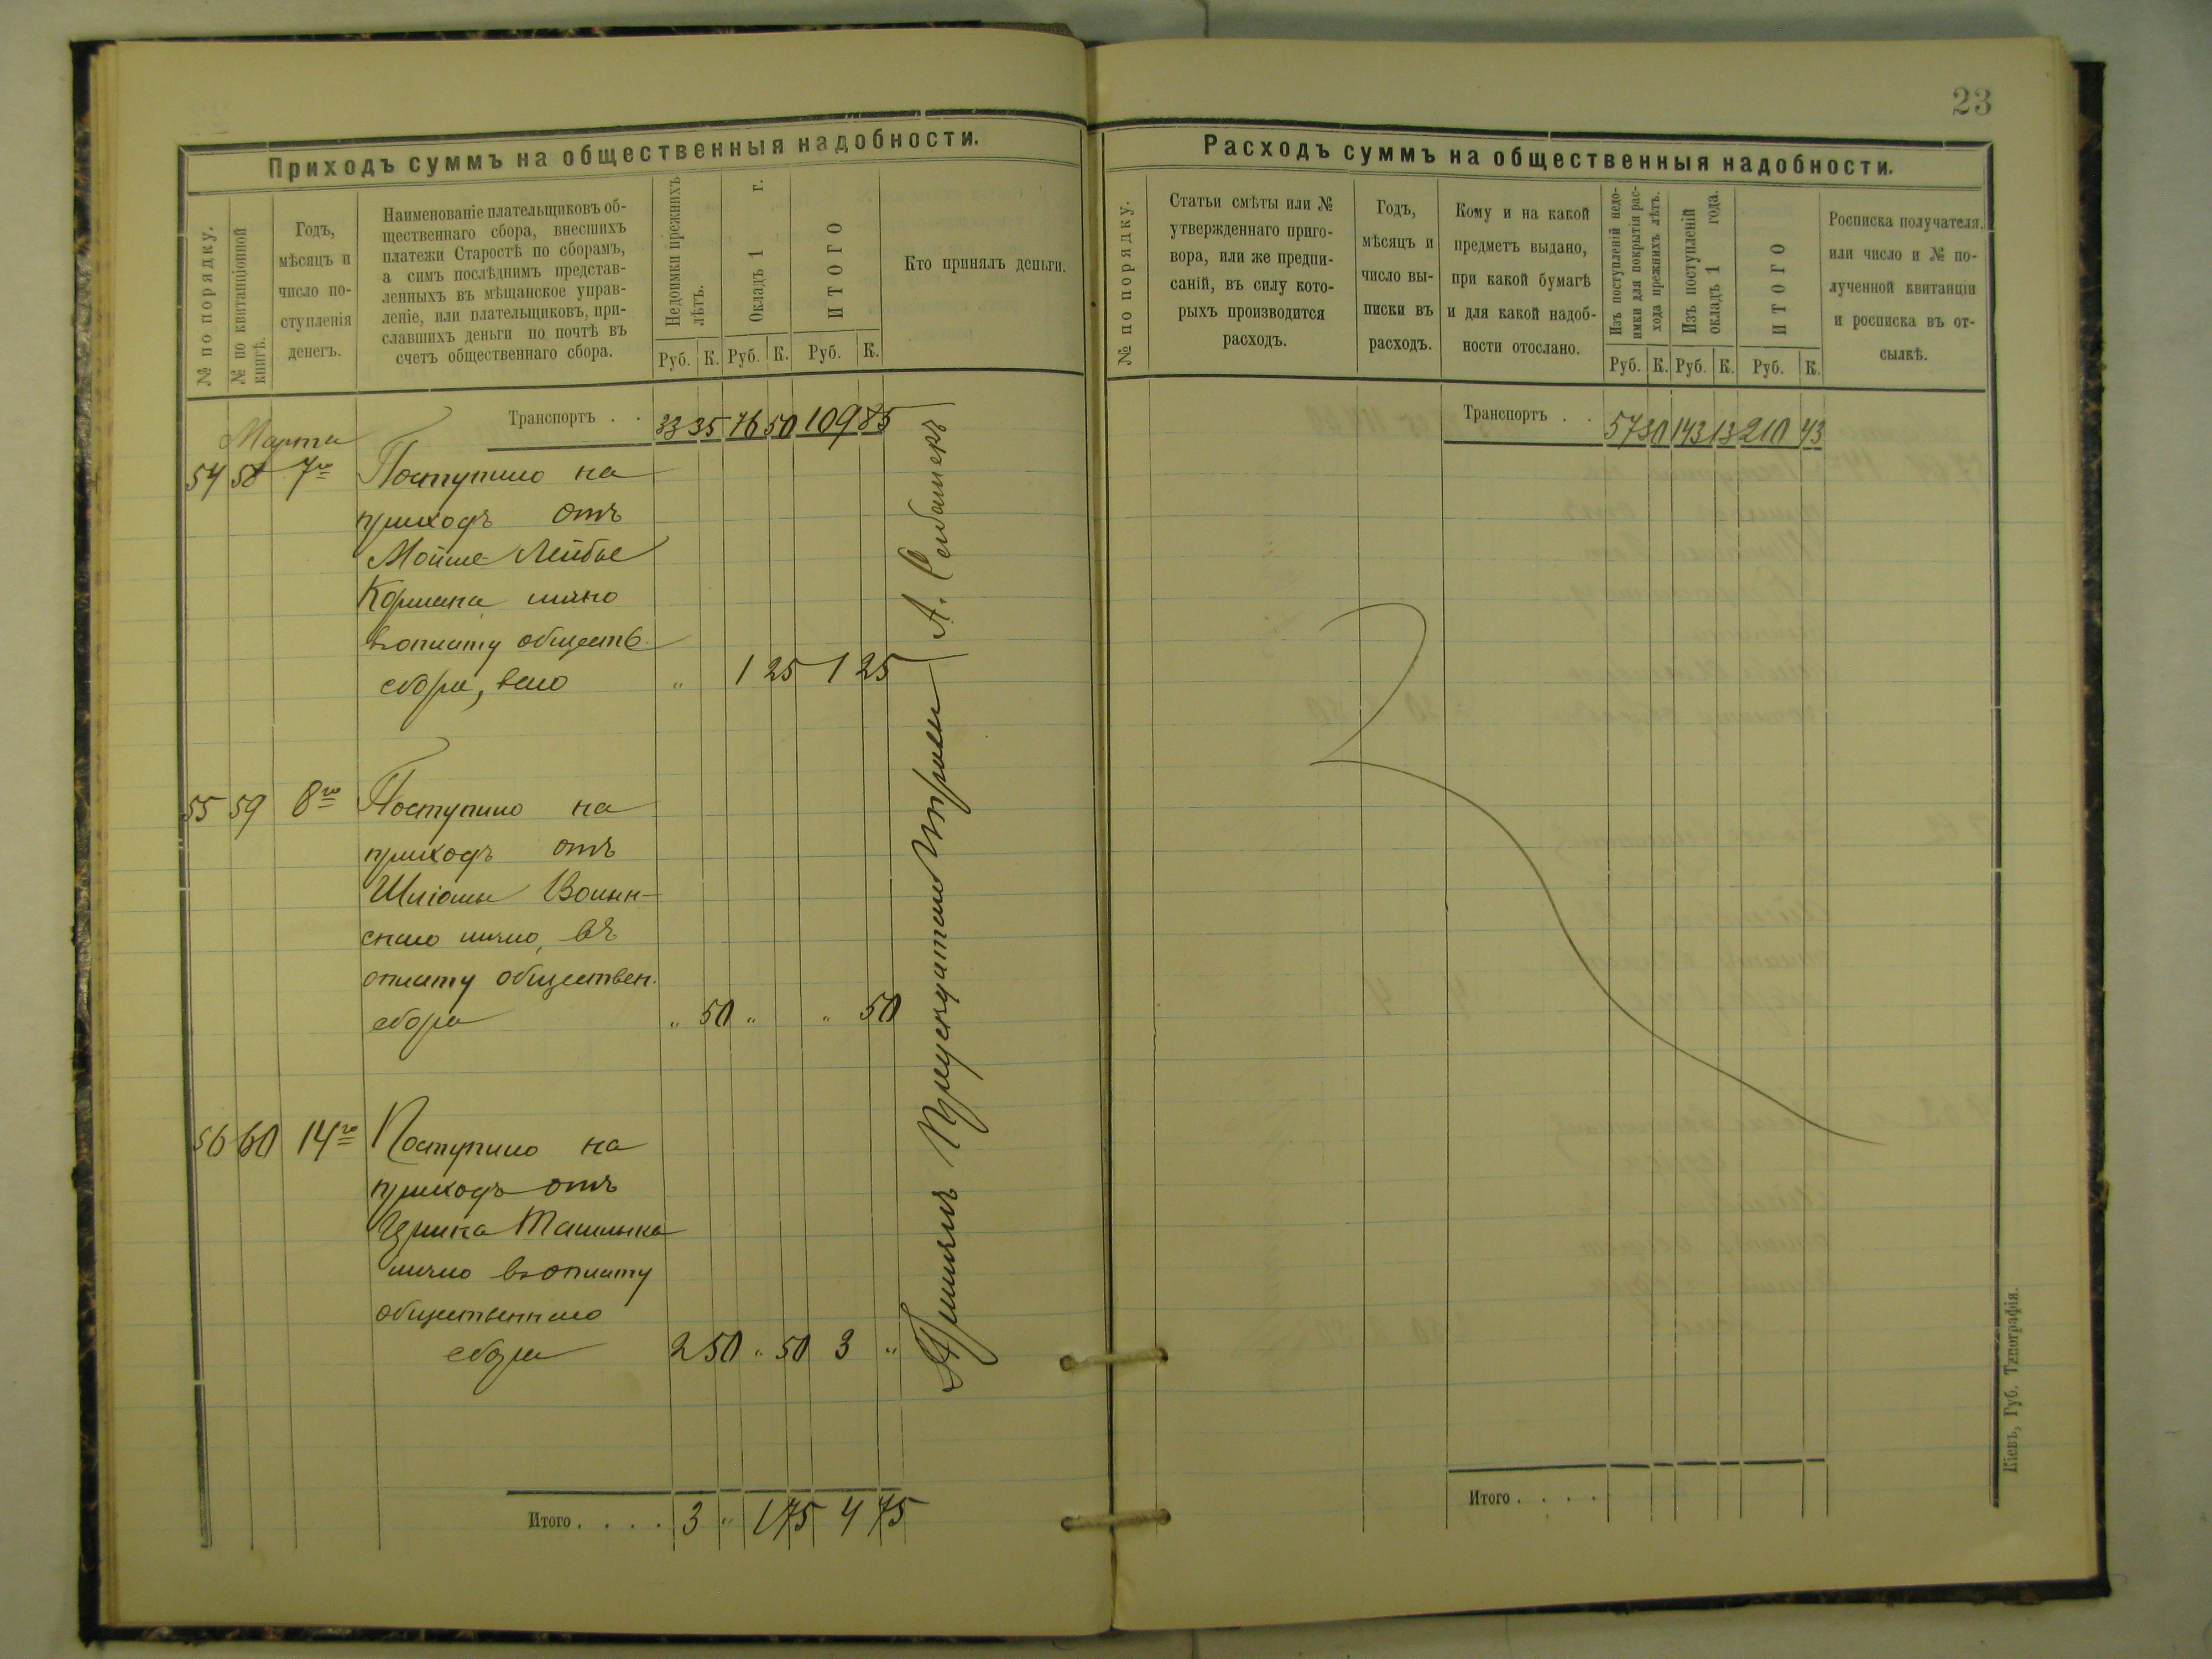 23
Приходъ суммъ на общественныя надобности.
№ по порядку.
№ по квитанціонной книгѣ.
Годъ,
мѣсяцъ и
число по-
ступленія
денегъ.
Наименованіе плательщиковъ об-
щественнаго сбора, внесшихъ
платежи Старостѣ по сборамъ,
а симъ послѣднимъ представ-
ленныхъ въ мѣщанское управ-
леніе, или плательщиковъ, при-
славшихъ деньги по почтѣ въ
счетъ общественнаго сбора.
Недоимки прежнихъ
лѣтъ.
Окладъ 1 г.
ИТОГО
Руб. К. Руб. К. Руб. К.
Кто принялъ деньги.
Транспортъ . . 33 35 76 50 109 85
Марта
54 58 7го Поступило на
приходъ отъ
Мойше Лейбы
Кормана лично
въ оплату обществ.
сбора, всего " 1 25 1 25
55 59 8го Поступило на
приходъ отъ
Шліомы Волын-
скаго лично, въ
оплату обществен.
сбора " 50 " " 50
56 60 14го Поступило на
приходъ отъ
лично въ оплату
общественнаго
сбора 2 50 " 50 3 "
Итого . . . . 3 " 1 75 4 75
Принялъ
А.
Расходъ суммъ на общественныя надобности.
№ по порядку.
Статьи смѣты или №
утвержденнаго приго-
вора, или же предпи-
саній, въ силу кото-
рыхъ производится
расходъ.
Годъ,
мѣсяцъ и
число вы-
писки въ
расходъ.
Кому и на какой
предметъ выдано,
при какой бумагѣ
и для какой надоб-
ности отослано.
Изъ поступленій недо-
имки для покрытія рас-
хода прежнихъ лѣтъ.
Изъ поступленій
окладъ 1 года.
ИТОГО
Руб. К. Руб. К. Руб. К.
Росписка получателя.
или число и № по-
лученной квитанціи
и росписка въ от-
сылкѣ.
Транспортъ . . 57 30 143 13 210 43
Итого . . . .
Кіевъ, Губ. Типографія.